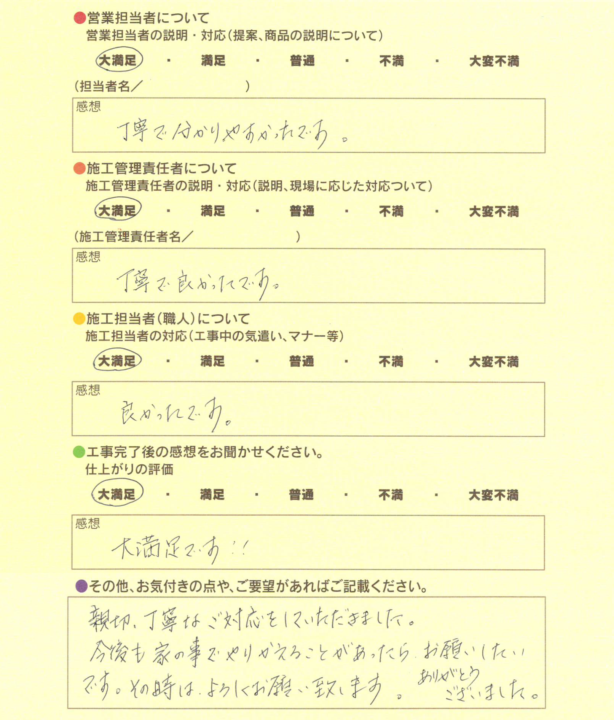 ●営業担当者について
営業担当者の説明・対応(提案、商品の説明について)
大満足 ・ 満足 ・ 普通 ・ 不満 ・ 大変不満
(担当者名／ )
感想
丁寧で分かりやすかったです。
●施工管理責任者について
施工管理責任者の説明・対応(説明、現場に応じた対応ついて)
大満足 ・ 満足 ・ 普通 ・ 不満 ・ 大変不満
(施工管理責任者名／ )
感想
丁寧で良かったです。
●施工担当者(職人)について
施工担当者の対応(工事中の気遣い、マナー等)
大満足 ・ 満足 ・ 普通 ・ 不満 ・ 大変不満
感想
良かったです。
●工事完了後の感想をお聞かせください。
仕上がりの評価
大満足 ・ 満足 ・ 普通 ・ 不満 ・ 大変不満
感想
大満足です!!
●その他、お気付きの点や、ご要望があればご記載ください。
親切、丁寧なご対応をしていただきました。
今後も家の事でやりかえることがあったら、お願いしたい
です。その時は、よろしくお願い致します。ありがとう
ございました。